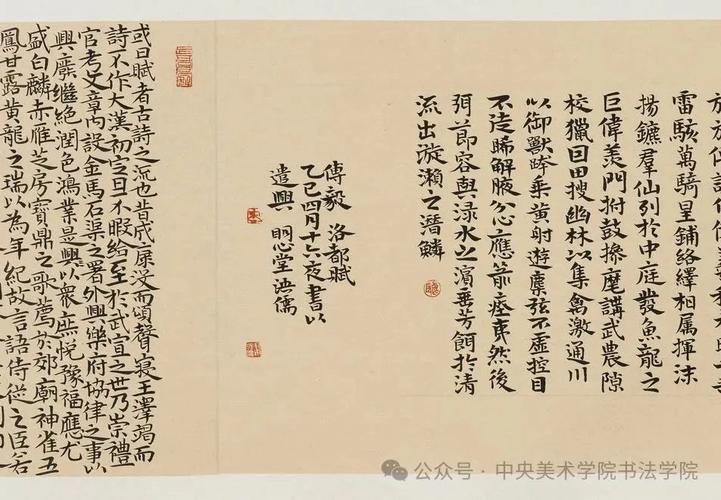 雷駭萬騎星鋪絡繹相属揮沫
揚鑣羣仙列於中庭發魚龍之
巨偉羨門拊鼓操麾講武農隙
校獵因田搜幽林以集禽激通川
以御獸跨乘黄射遊麋弦不虛控目
不徒睎解腋分心應箭殪夷然後
弭節容與渌水之濱垂芳餌於清
流出漩瀨之潛鱗
傅毅 洛都賦
乙巳四月十六夜書以
遣興 明心堂 儒
或曰賦者古詩之流也昔成康没而頌聲寢王澤竭而
詩不作大漢初定日不暇給至於武宣之世乃崇禮
官考文章内設金馬石渠之署外興樂府協律之事以
興廢繼絕潤色鴻業是興以衆庶悅豫福應尤
盛白麟赤雁芝房寶鼎之歌薦於郊廟神雀五
鳳甘露黄龍之瑞以為年紀故言語侍從之臣若
公众号 · 中央美术学院书法学院